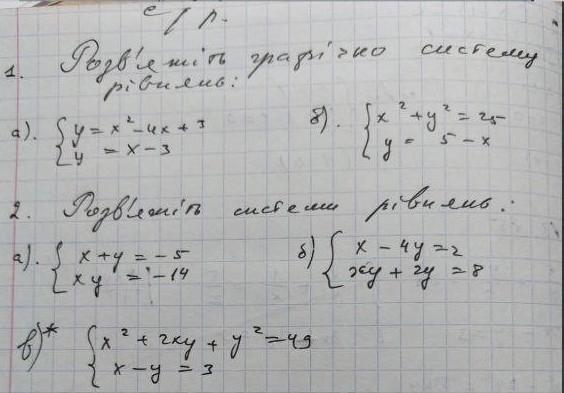 с / р.
1. Розв'яжіть графічно систему
рівнянь:
а). { y = x² - 4x + 3
y = x - 3
б). { x² + y² = 25
y = 5 - x
2. Розв'яжіть системи рівнянь:
а). { x + y = -5
xy = -14
б) { x - 4y = 2
xy + 2y = 8
в)* { x² + 2xy + y² = 49
x - y = 3